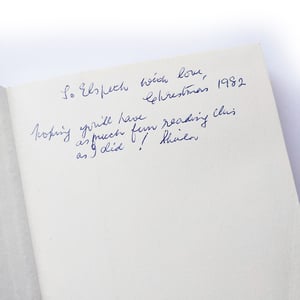 To Elspeth with love,
Christmas 1982
Hoping you'll have
as much fun reading this
as I did! Sheila